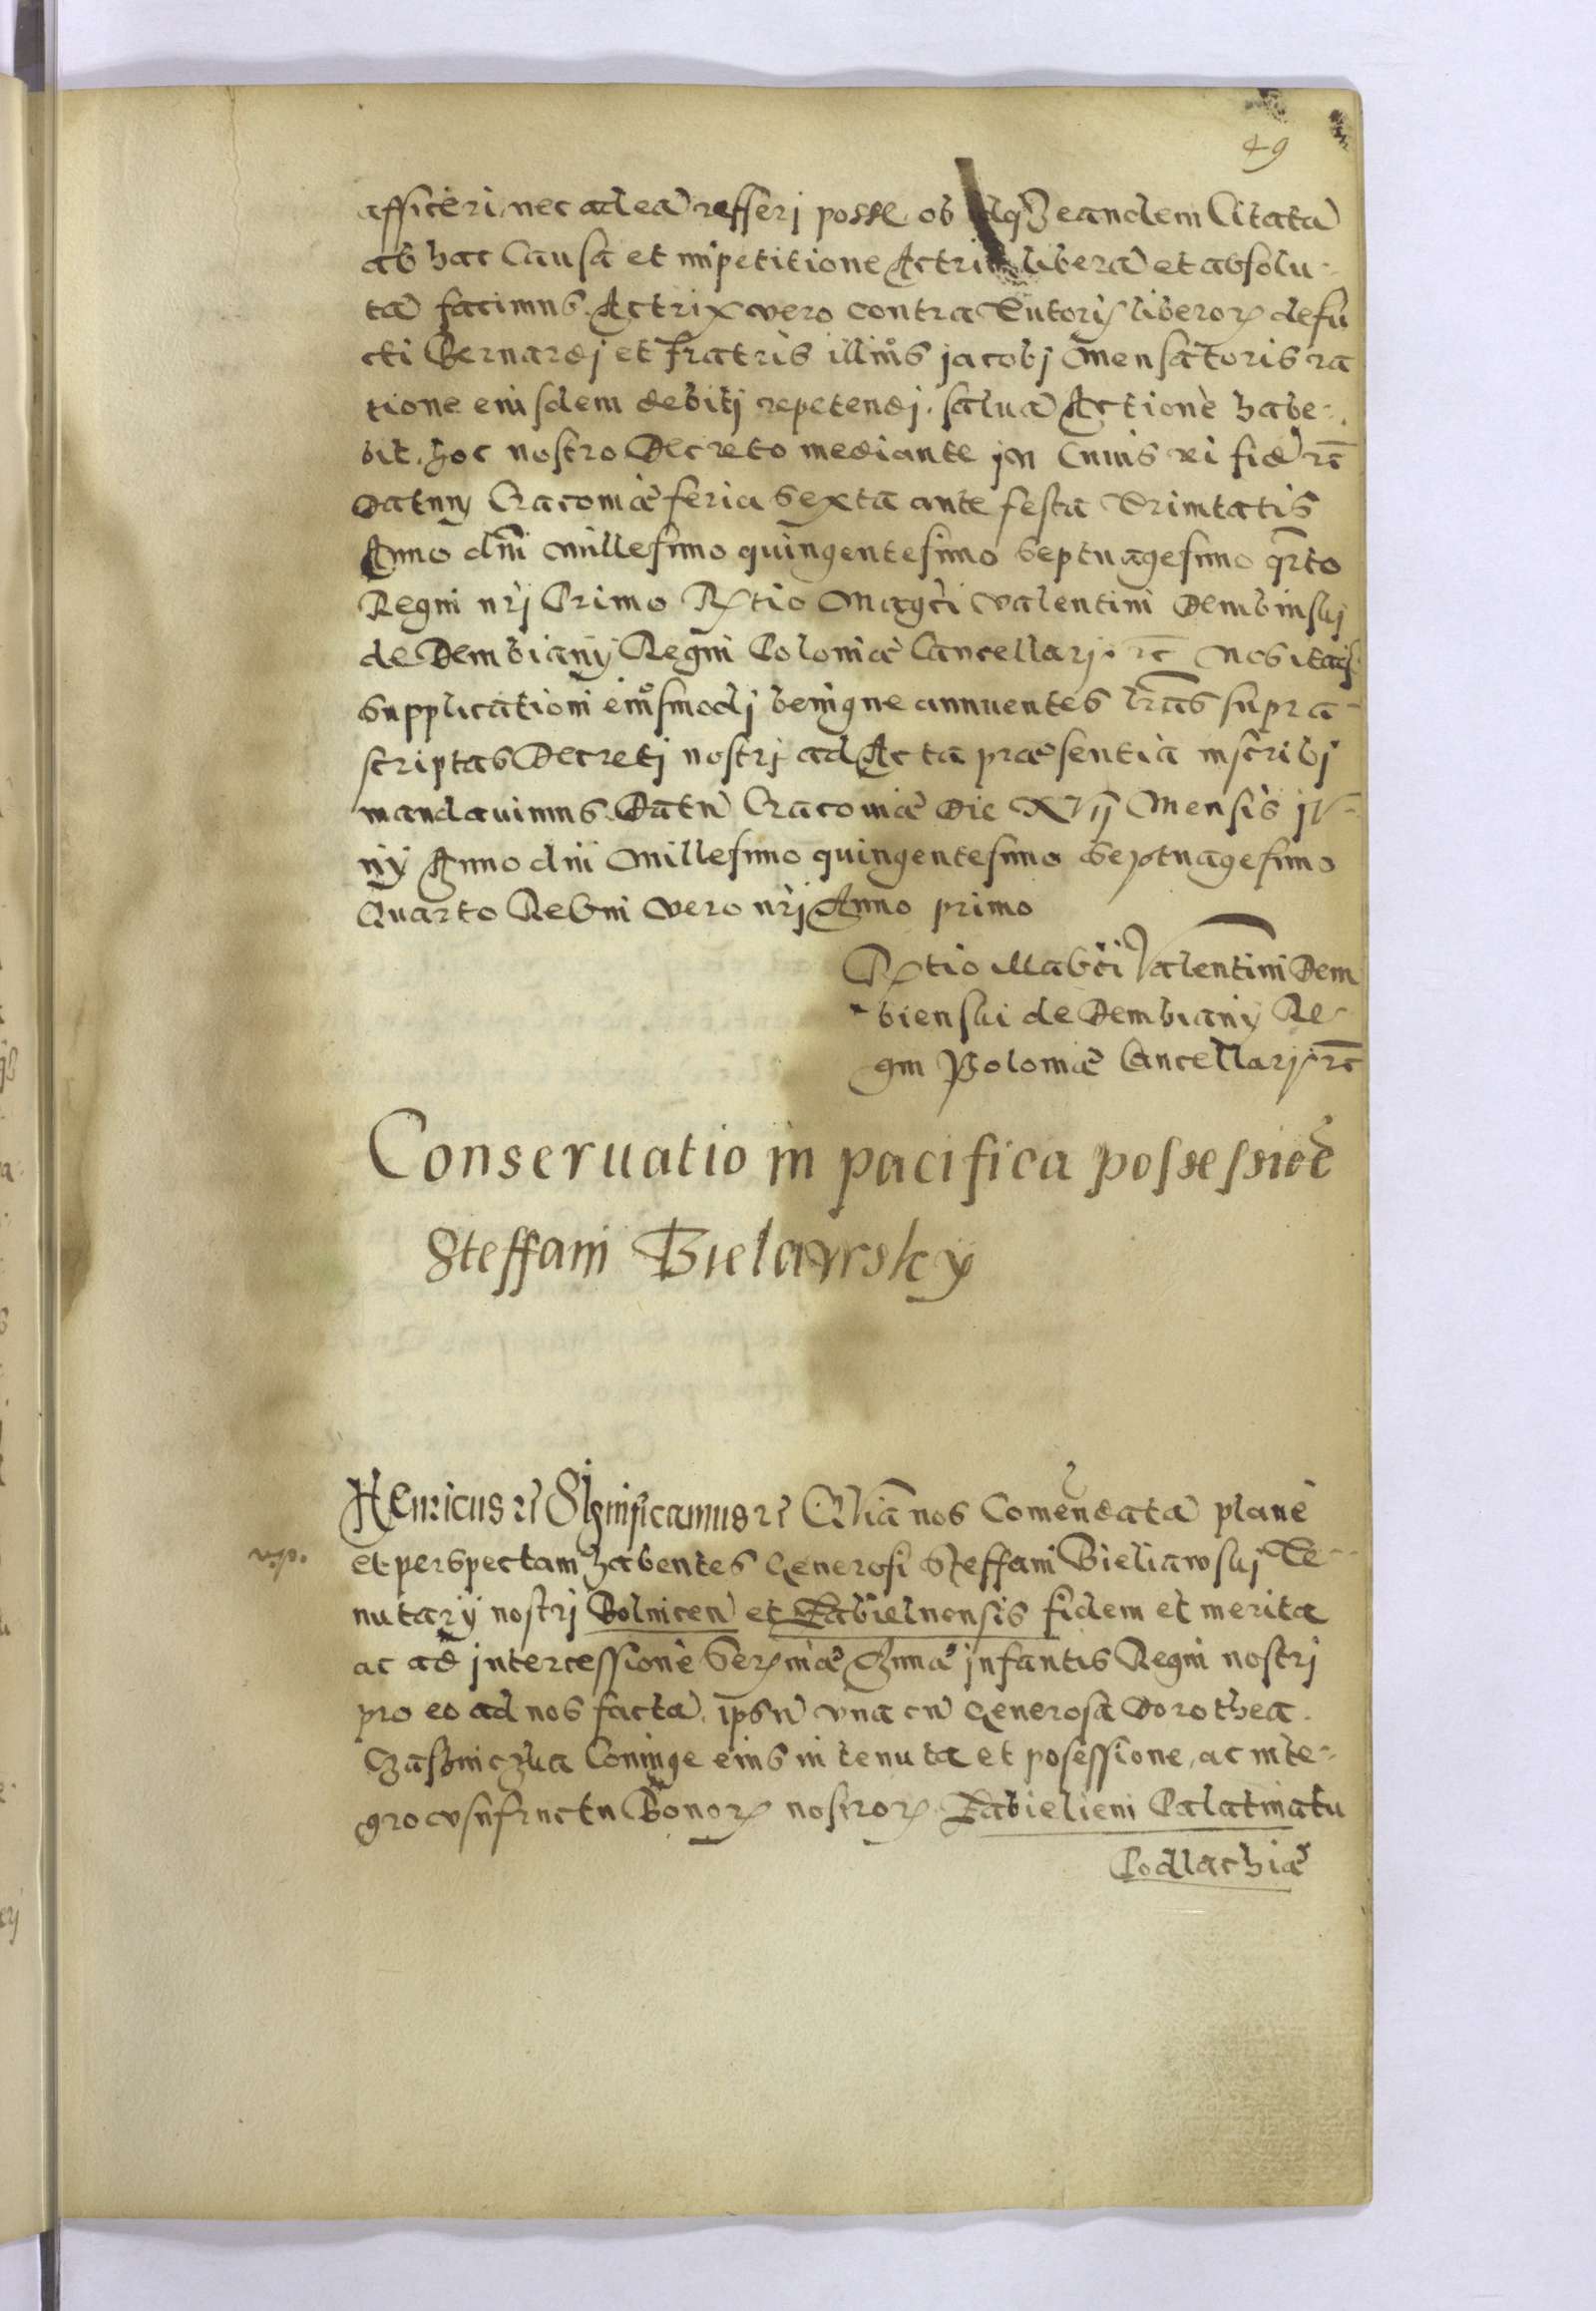 49
afficeri, nec ad eã refferj posse ob idq3 eandem Citatã
ab hac Causa et impetitione Actricis liberã et absolu-
tã facimus. Actrix vero contra Tutorẽ liberorꝝ defũ
cti Bernardj et fratris illius jacobj Mensatoris ra
tione eiusdem debitj repetendj. saluã Actionẽ habe-
bit. hoc nostro Decreto mediante jn Cuius rei fidẽ rc̃
Datum Cracouiæ feria sexta ante festã Trinitatis
Anno dnĩ millesimo quingentesimo septuagesimo qrto
Regni nrj Primo Rꝑtio Magci valentini Dembinskj
de Dembianÿ Regni Poloniæ Cancellarj. rc̃ Nos itaqꝫ
supplicationi eiusmodj benigne annuentes lrãs supra-
scriptas Decretj nostrj ad Acta præsentia inscribj
mandauimus. Datũ Cracouiæ Die XVij Mensis jV-
nÿ Anno dnĩ Millesimo quingentesimo septuagesimo
Quarto Regni vero nrj Anno primo
Rꝑtio Magci Valentini Dem
bienski de Dembianÿ Re-
gni Poloniæ Cancellarj rc̃
Conseruatio in pacifica possessioẽ
Steffani Bielawsky
Henricus rc̃ Significamus rc̃ Quiã nos Comendatã planè
et perspectam habentes Generosi Steffani Bieliawskj Te-
nutarÿ nostrj Bolnicen̄ et Zabielnensis fidem et merita
ac ad intercessionẽ Serꝫniæ Annæ jnfantis Regni nostrj
pro eo ad nos factã. ipsũ vna cũ Generosa Dorothea.
Coniuge eius in tenuta et posessione, ac inte-
gro vsufructu Bonorꝝ nostrorꝝ Zabielieni Palatinatu
Podlachiæ